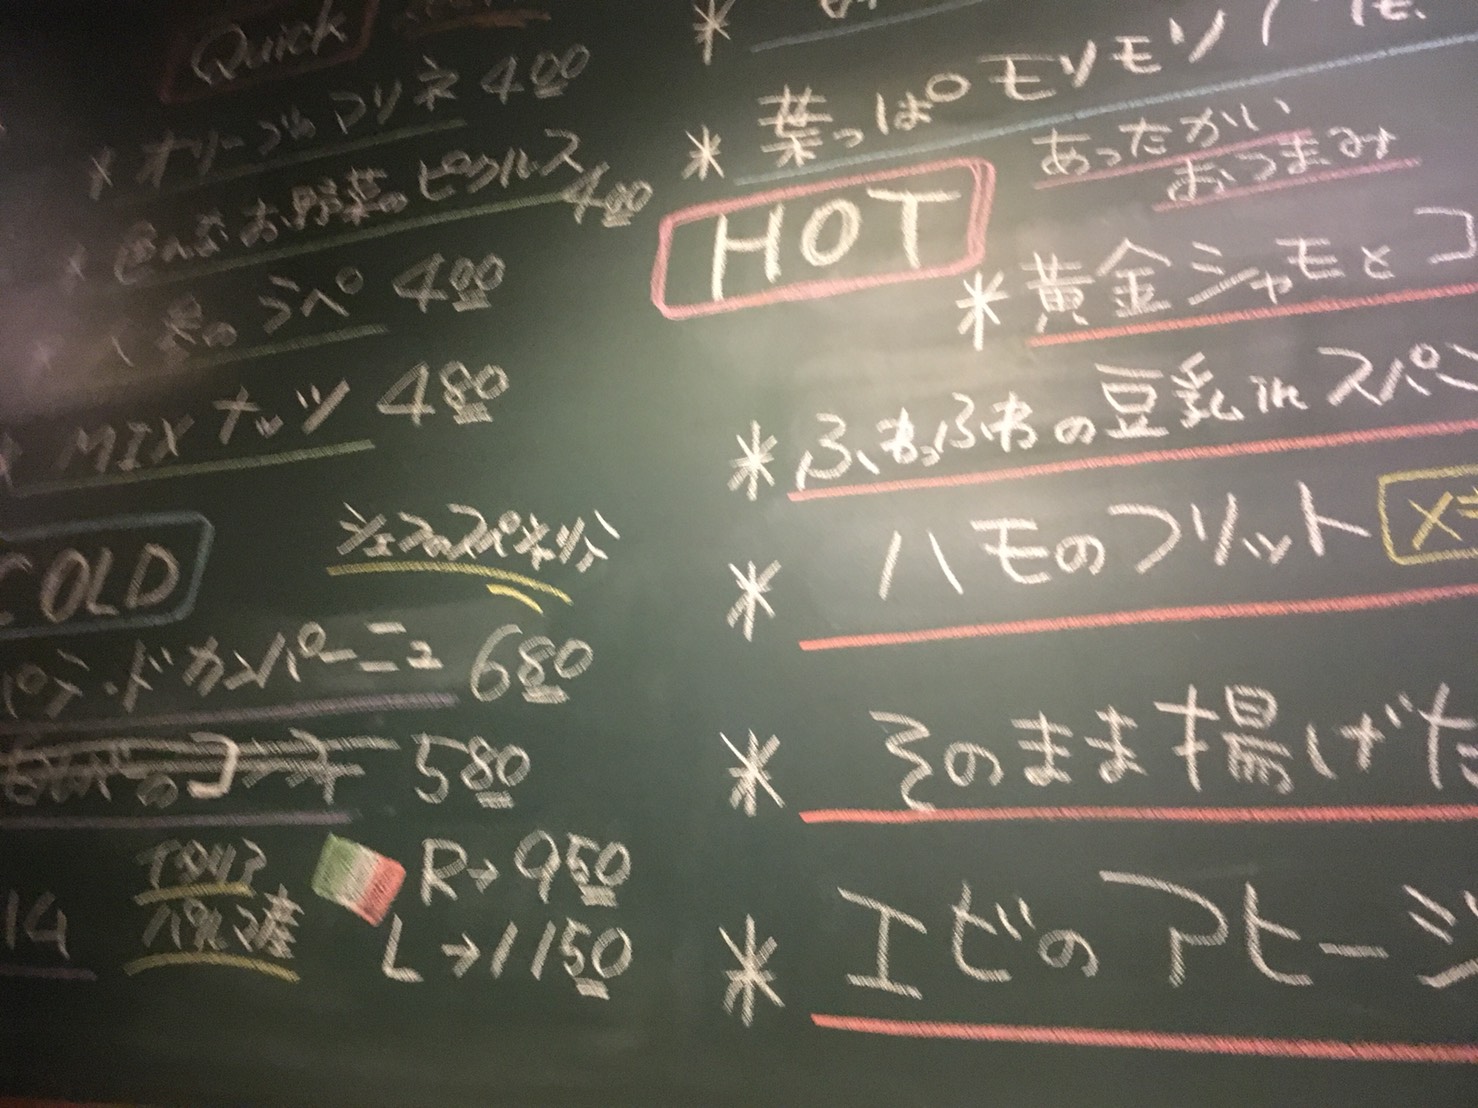 Quick
* オリーブ&マリネ 400
* 色々お野菜のピクルス 400
のラペ 400
* MIXナッツ 480
COLD シェフのスペシャリテ
パテ・ド カンパーニュ 680
580
ハム イタリア パルマ産 R→950
L→1150
*
* 葉っぱモリモリ
HOT あったかい
おつまみ
* 黄金シャモと コ
* ふわっふわの豆乳 in スパ
* ハモのフリット
* そのまま揚げた
* エビのアヒージ